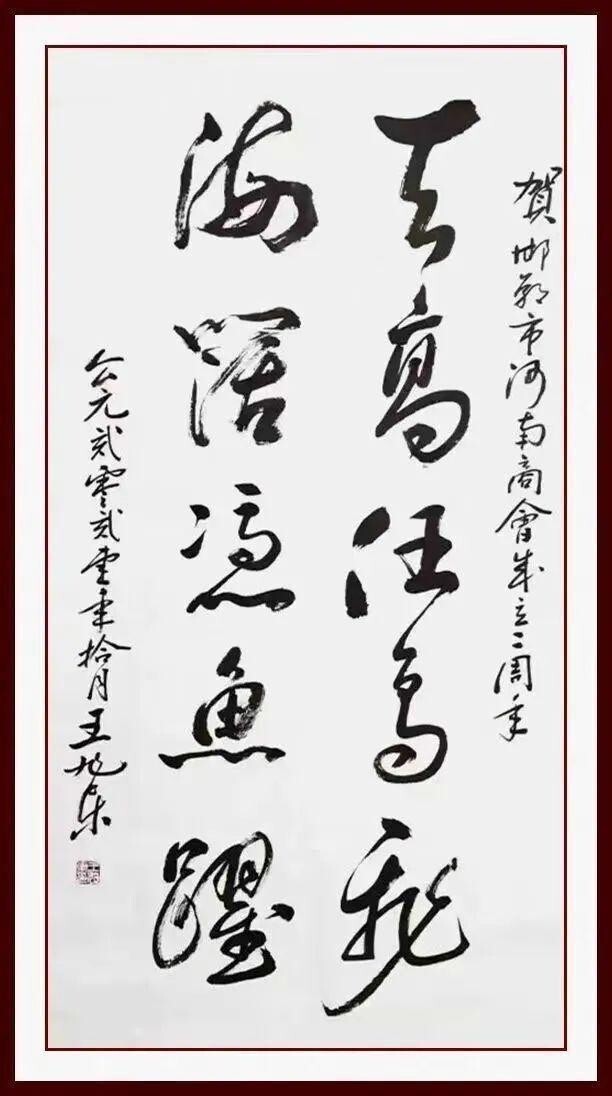 賀邯鄲市河南商會成立二周年
天高任鳥飛
海闊憑魚躍
公元貳零貳壹年拾月王旭东